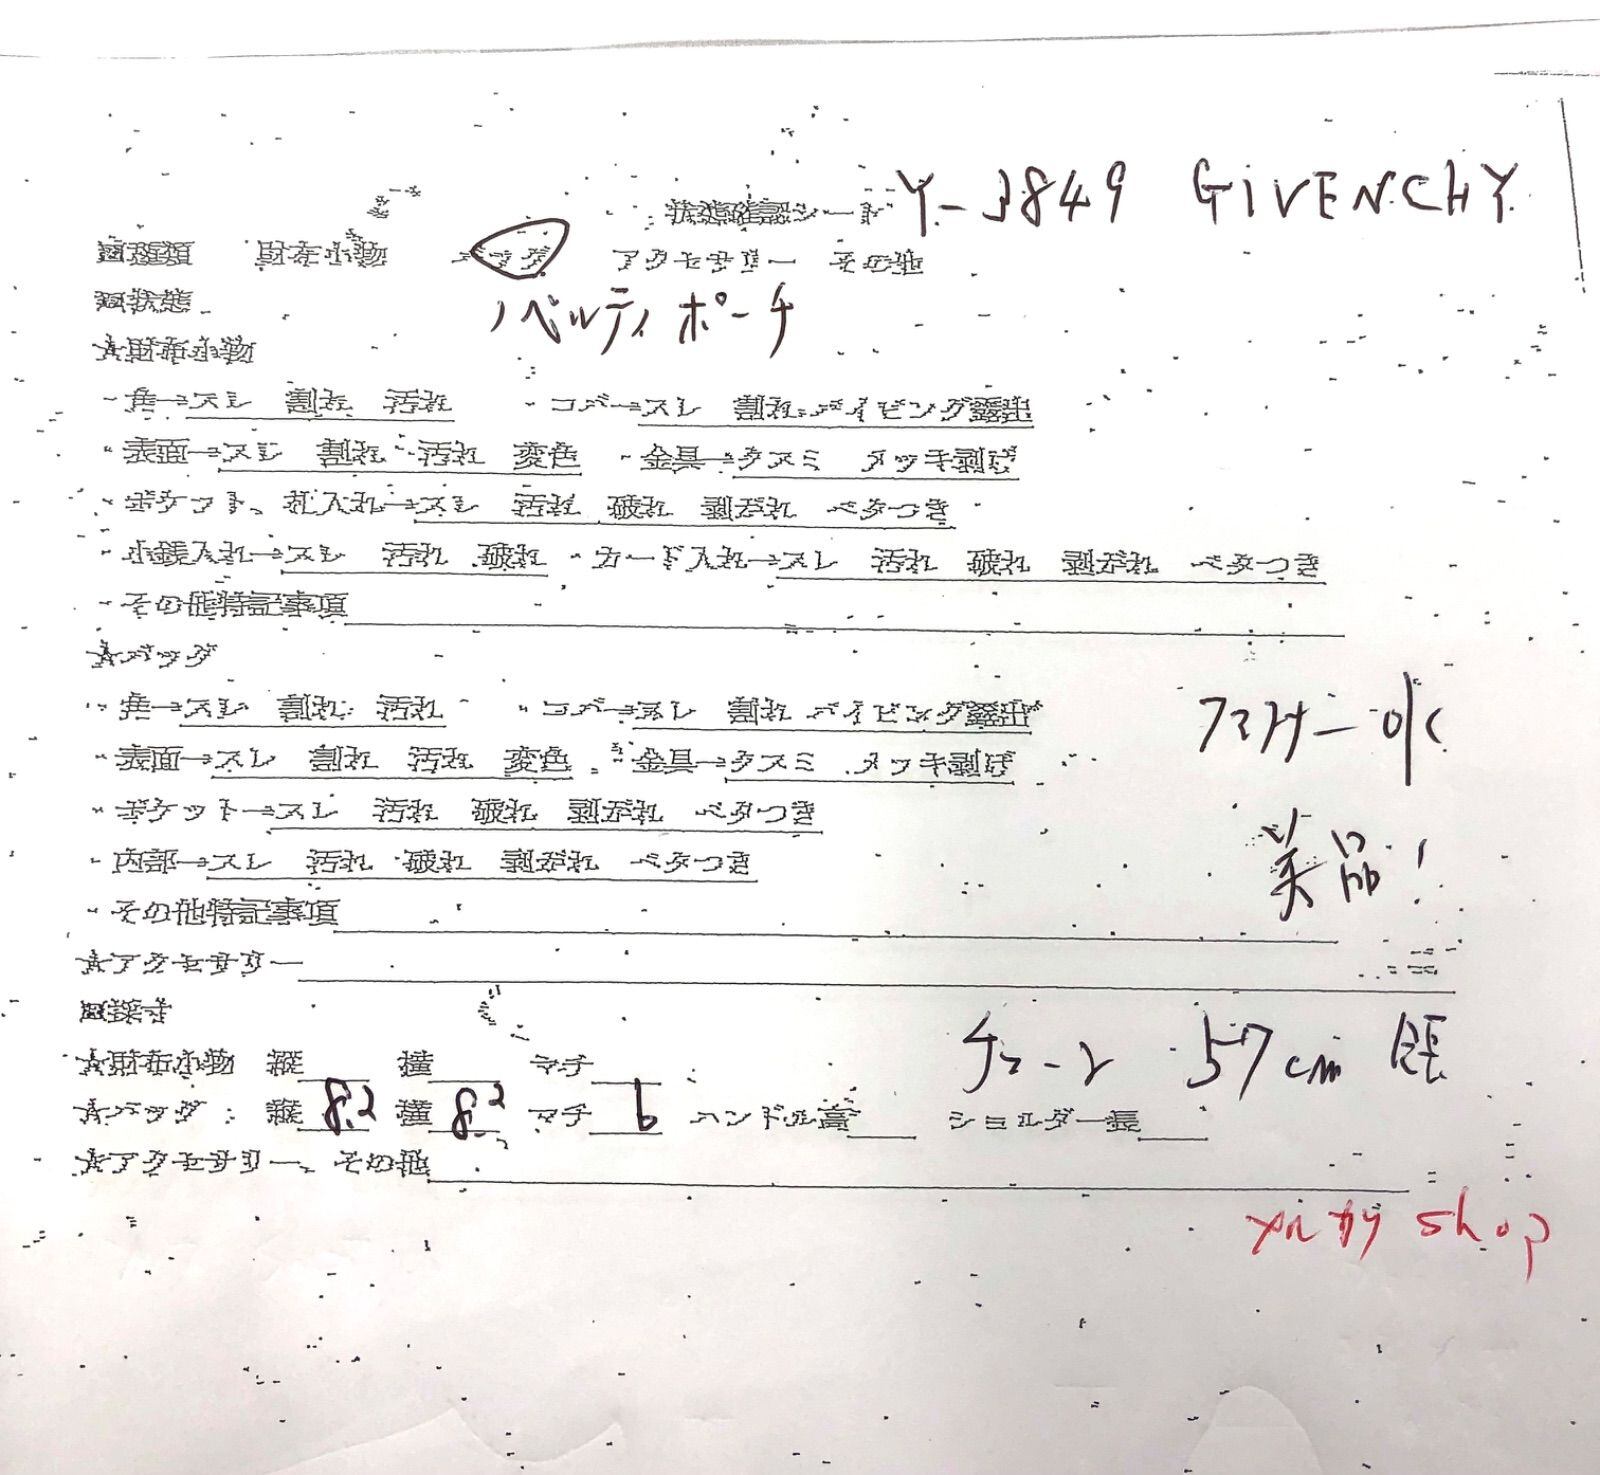 状態確認シート Y-3849 GIVENCHY
□種類 財布小物 バッグ アクセサリー その他
□状態 ノベルティポーチ
☆財布小物
・角→スレ 割れ 汚れ ・コバ→スレ 割れ パイピング露出
・表面→スレ 割れ 汚れ 変色 ・金具→クスミ メッキ剥げ
・ポケット、札入れ→スレ 汚れ 破れ 剥がれ ベタつき
・小銭入れ→スレ 汚れ 破れ ・カード入れ→スレ 汚れ 破れ 剥がれ ベタつき
・その他特記事項
☆バッグ
・角→スレ 割れ 汚れ ・コバ→スレ 割れ パイピング露出
・表面→スレ 割れ 汚れ 変色 ・金具→クスミ メッキ剥げ
・ポケット→スレ 汚れ 破れ 剥がれ ベタつき
美品!
・内部→スレ 汚れ 破れ 剥がれ ベタつき
・その他特記事項
☆アクセサリー
□採寸
☆財布小物 縦 横 マチ チェーン 57cm
☆バッグ:縦 8.2 横 8.2 マチ 6 ハンドル高 ショルダー長
☆アクセサリー、その他
shop